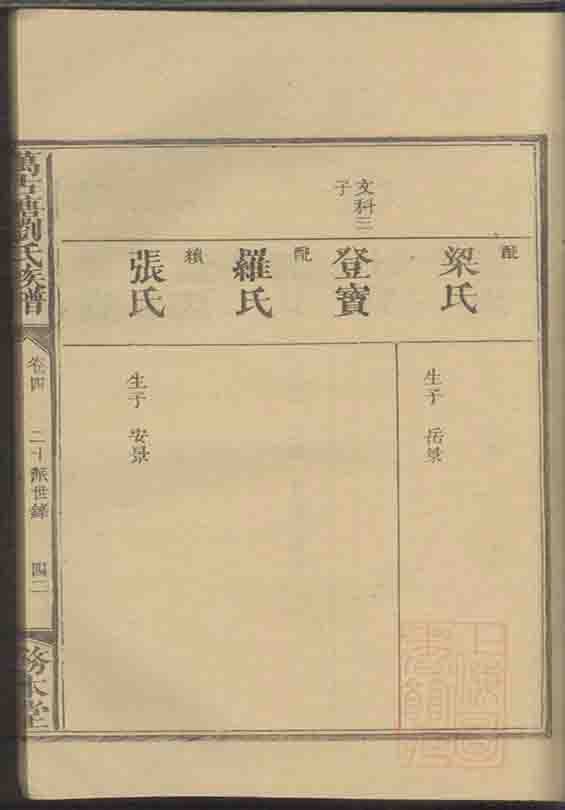 配
梁氏
生子 岳景
文科三
子
登寶
配
羅氏
續
張氏
生子 安景
劉氏族譜
卷四 二十派世錄 四二
務本堂